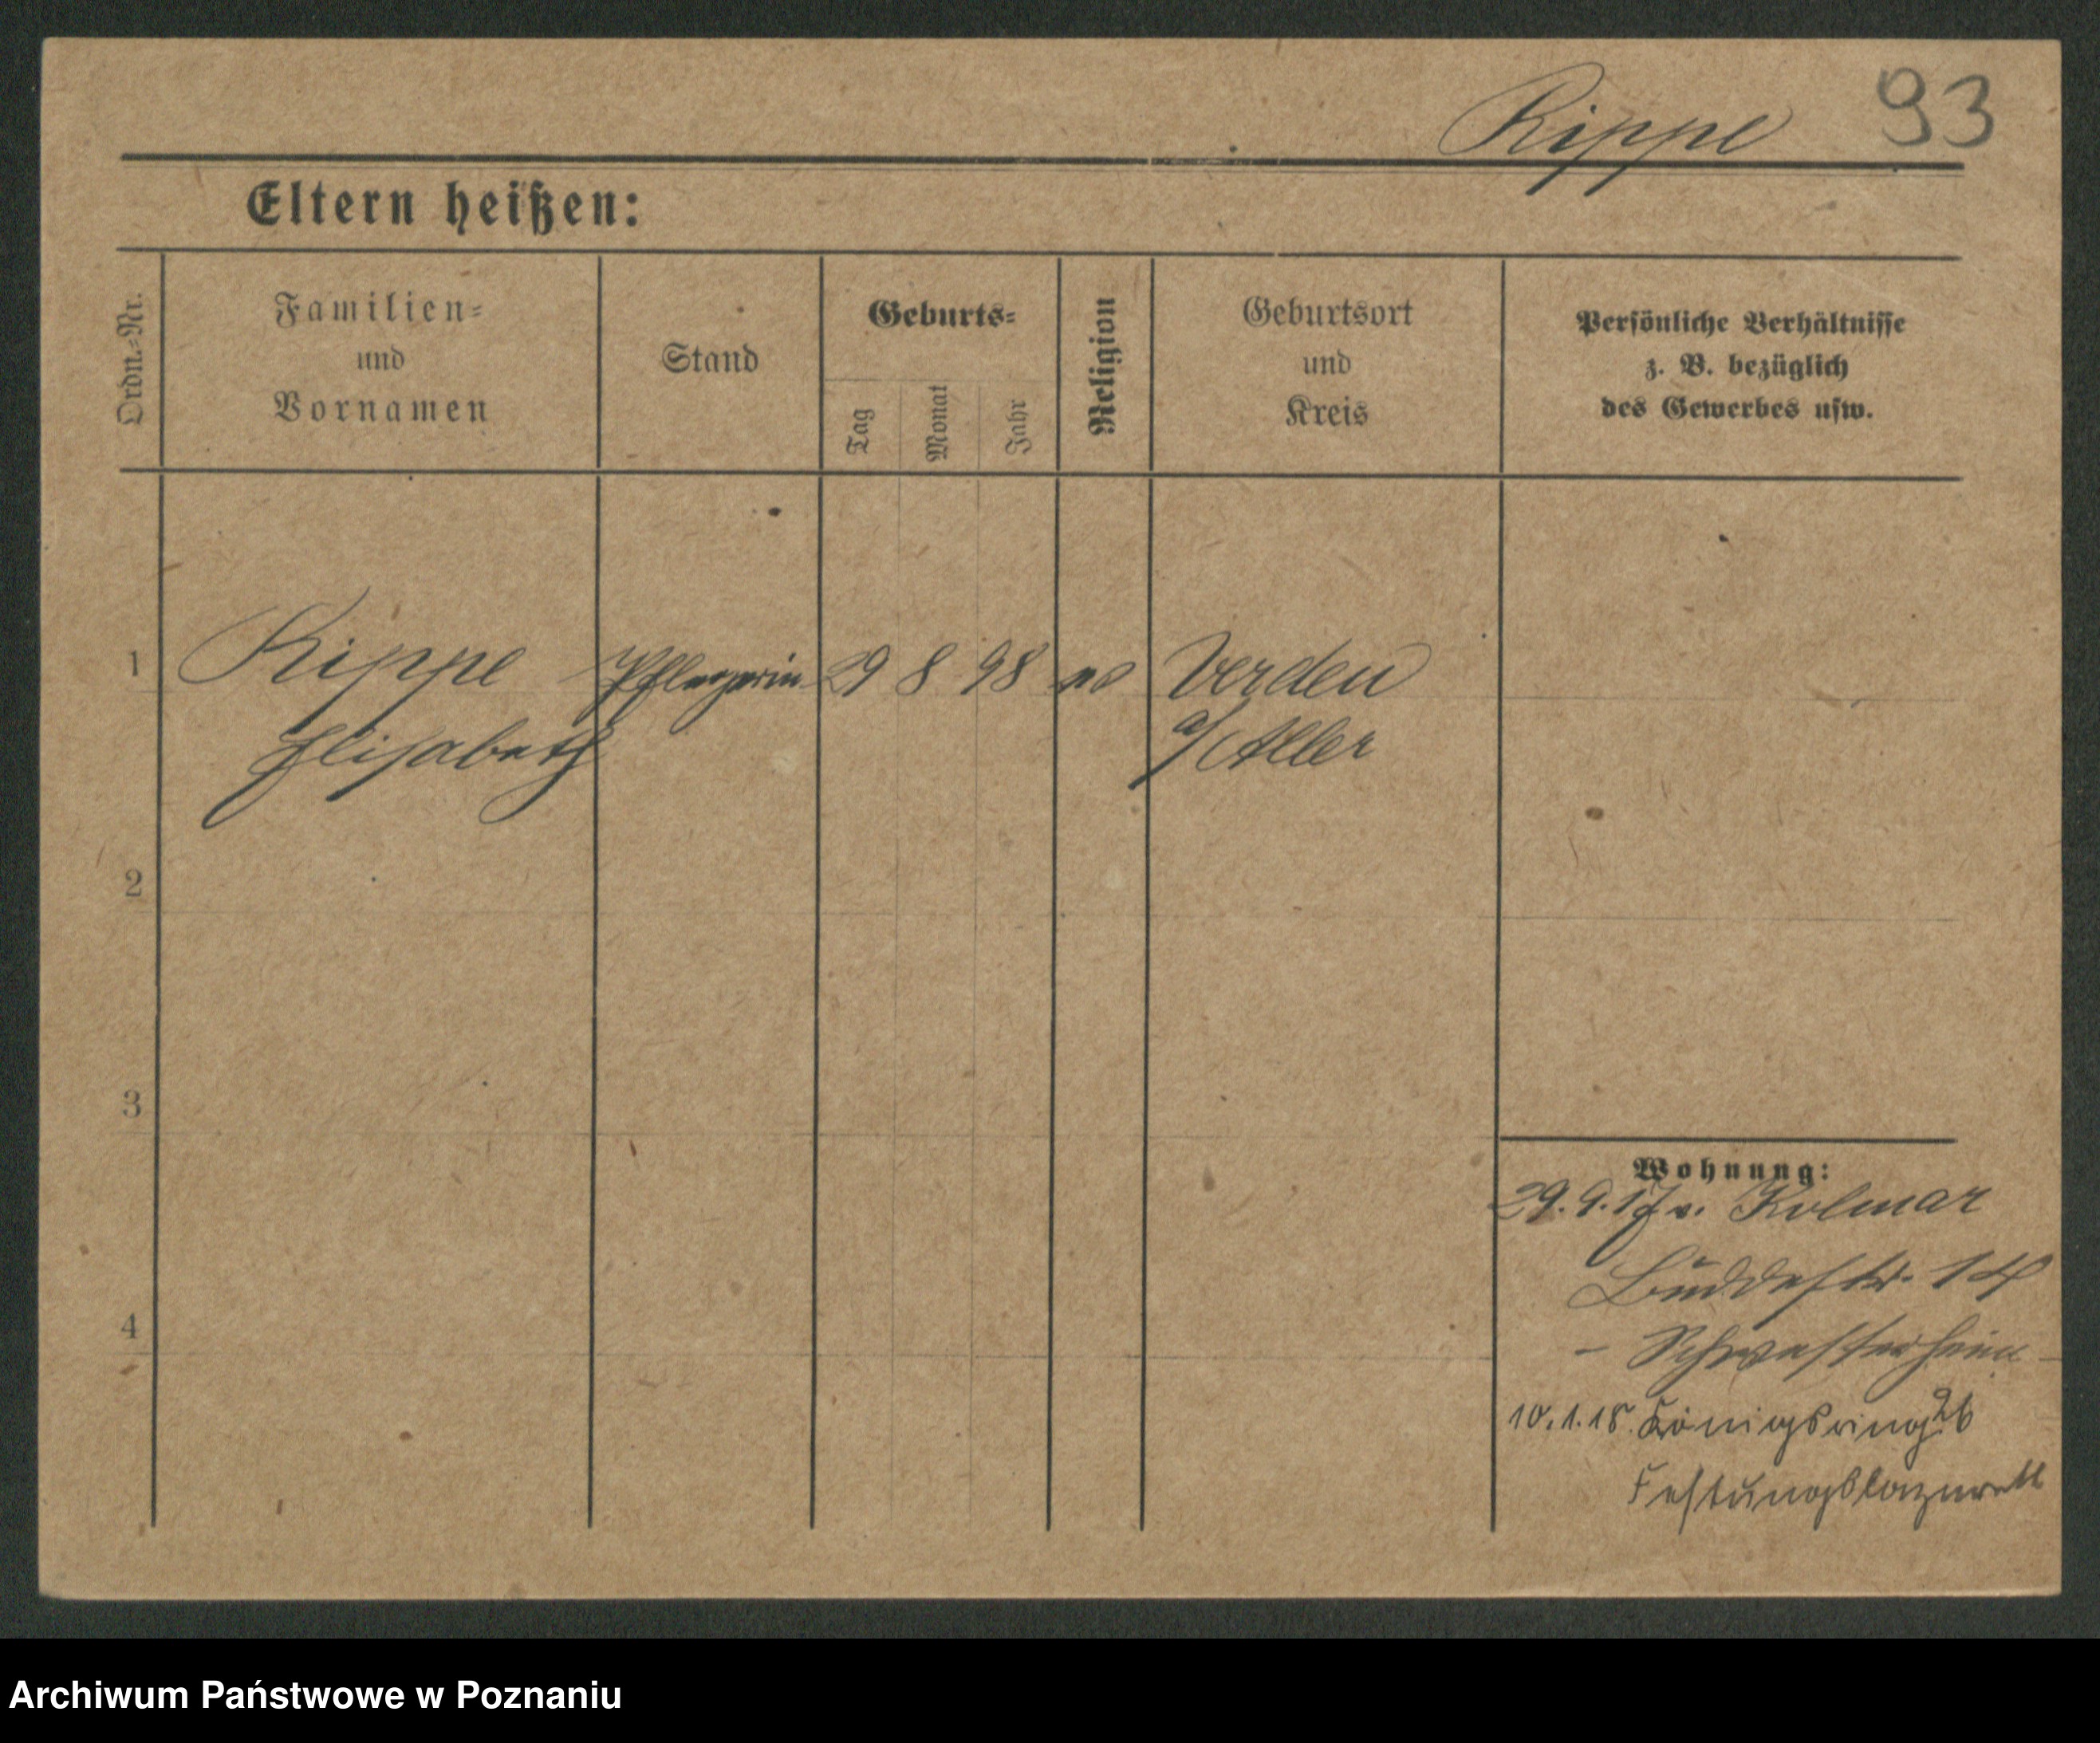 Rippe 93
Eltern heißen:
Ordn.-Nr.
Familien-
und
Vornamen
Stand
Geburts-
Tag
Monat
Jahr
Religion
Geburtsort
und
Kreis
Persönliche Verhältnisse
z. B. bezüglich
des Gewerbes usw.
1 Rippe Pflegerin 29 8 98 Verden
Elisabeth a/Aller
2
3
4
Wohnung:
29.9.17 v. Kolmar
Buddestr. 14
- Schwesterheim -
10.1.18. Königsring 26
Festungslazarett
Archiwum Państwowe w Poznaniu